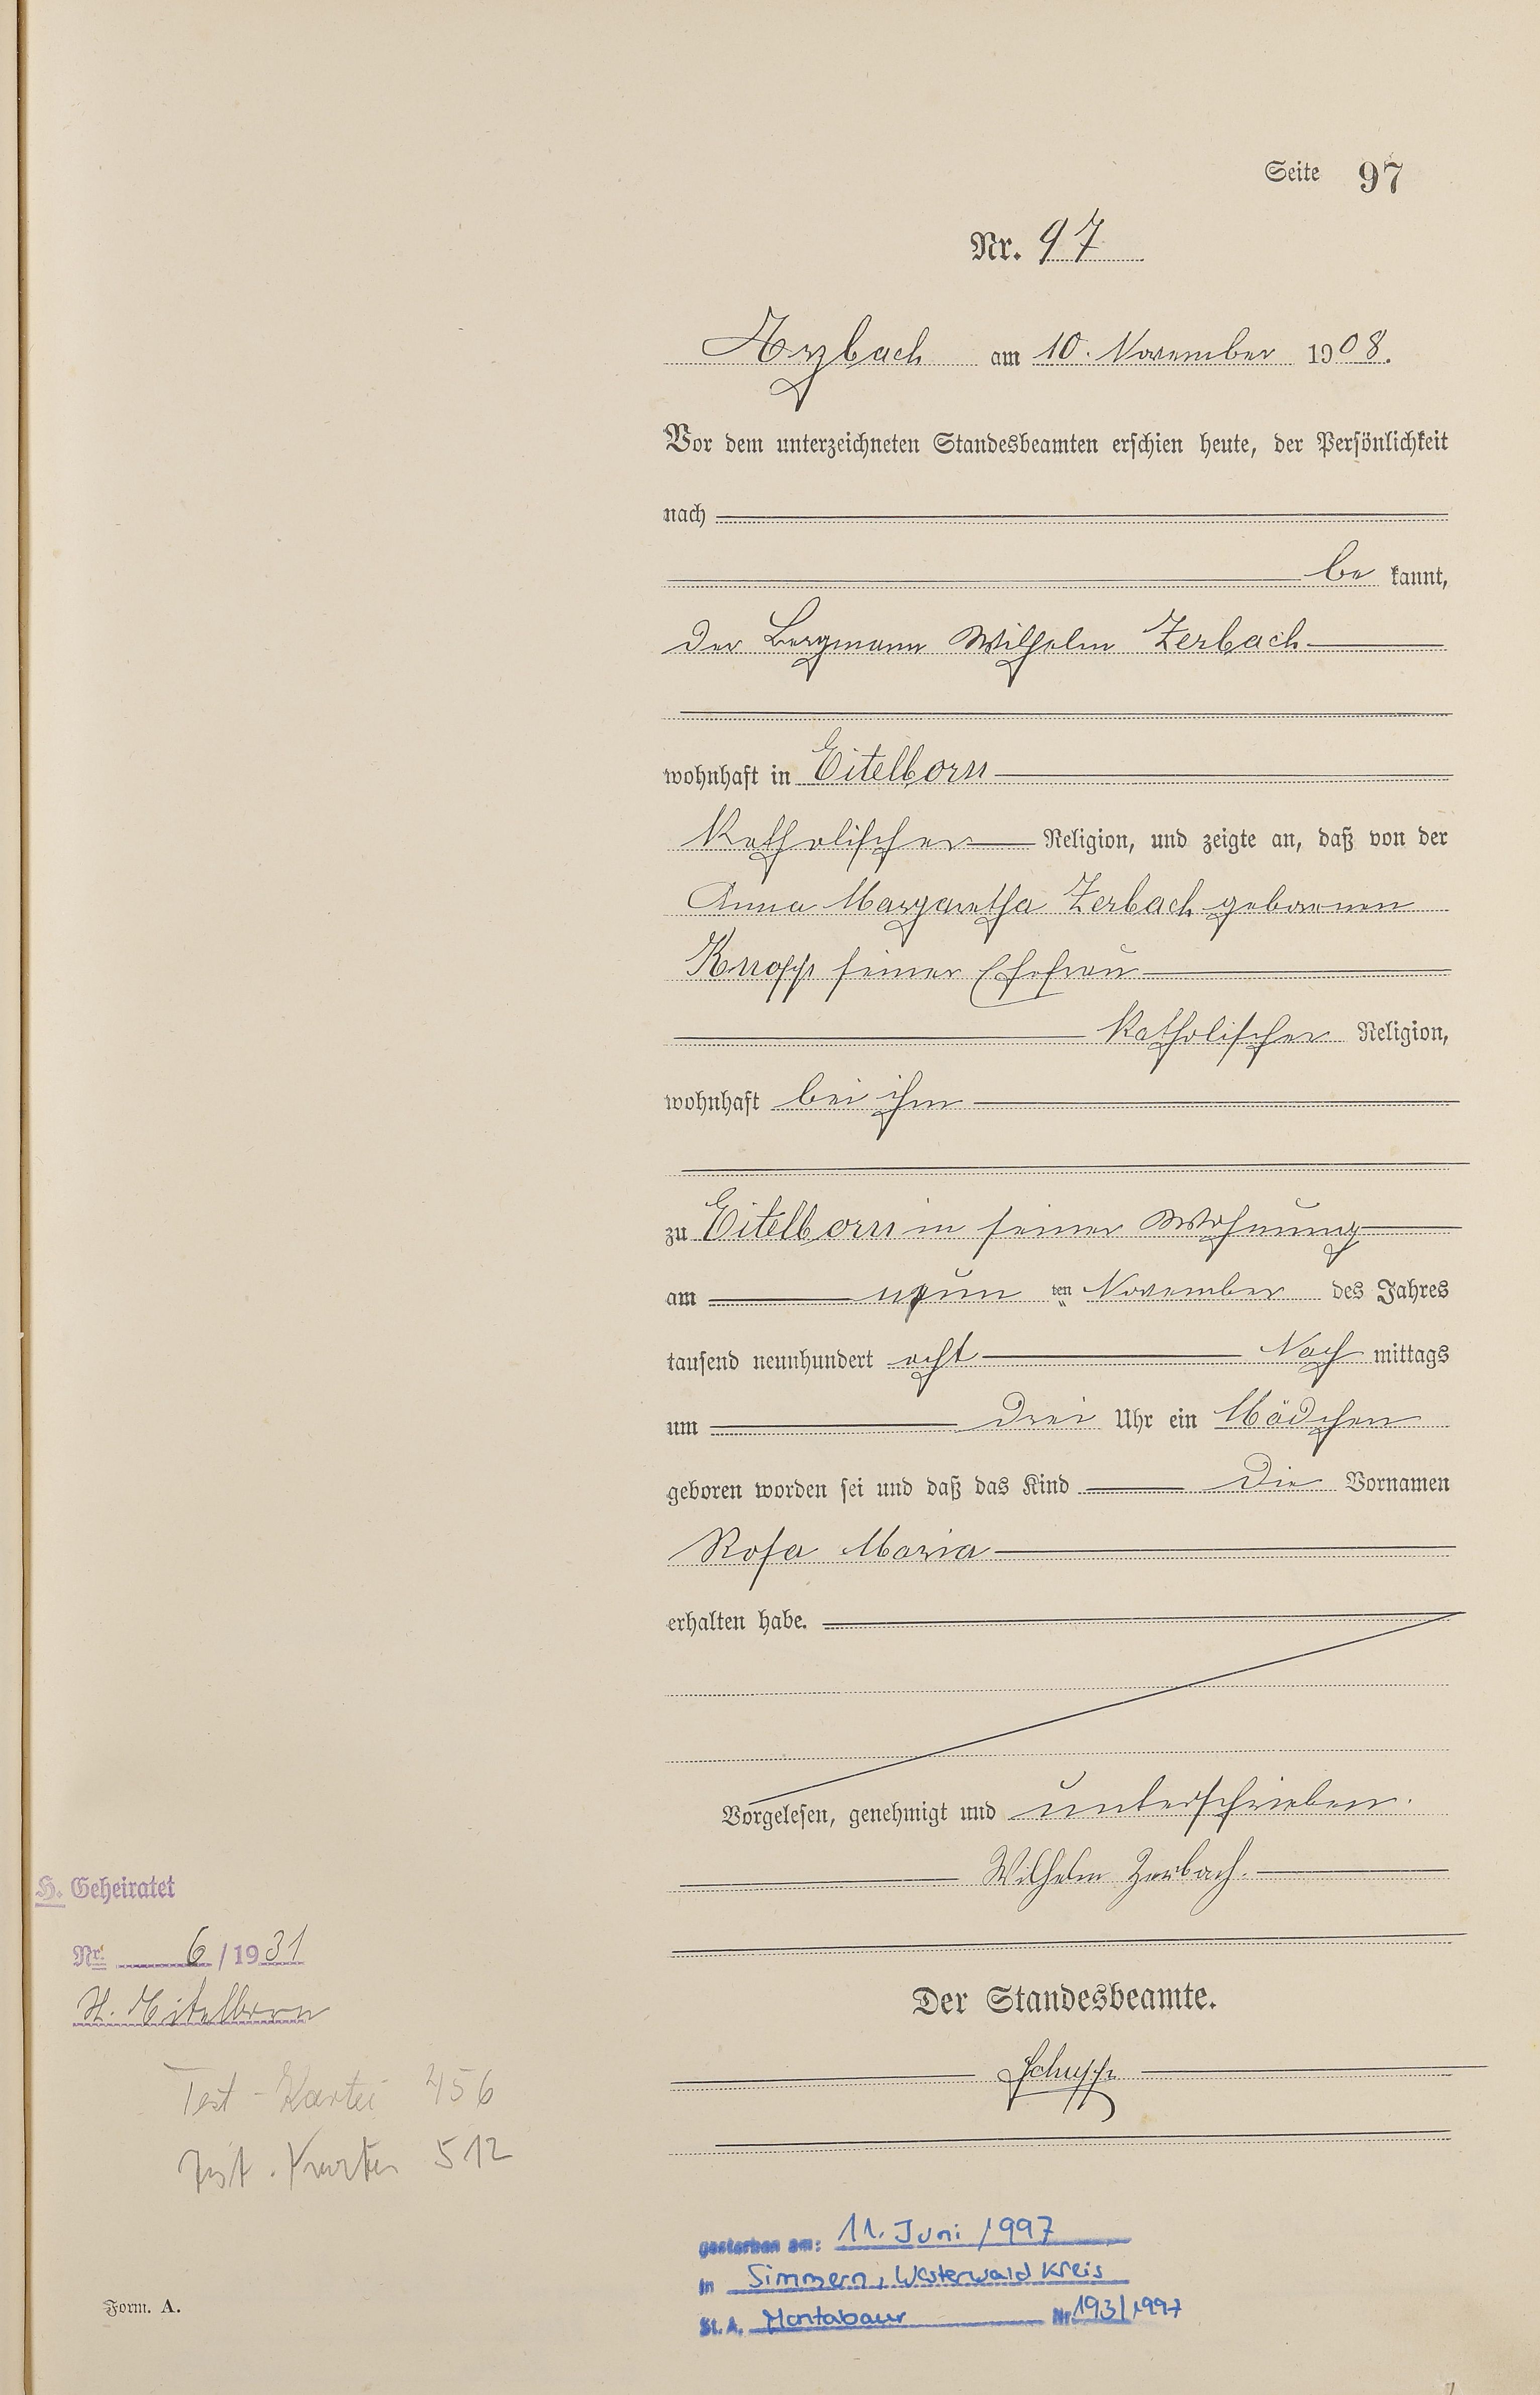 Seite 97
Nr. 97
Arzbach am 10. November 1908.
Vor dem unterzeichneten Standesbeamten erschien heute, der Persönlichkeit
nach
be kannt,
der Bergmann Wilhelm Zerbach
wohnhaft in Eitelborn
katholischer Religion, und zeigte an, daß von der
Anna Margaretha Zerbach geborenen
Knopp seiner Ehefrau
katholischer Religion,
wohnhaft bei ihm
zu Eitelborn in seiner Wohnung
am neun ten November des Jahres
tausend neunhundert acht Nach mittags
um drei Uhr ein Mädchen
geboren worden sei und daß das Kind die Vornamen
Rosa Maria
erhalten habe.
Vorgelesen, genehmigt und unterschrieben.
Wilhelm Zerbach.
Der Standesbeamte.
Schupp
H. Geheiratet
Nr. 6/1931
St. Eitelborn
Test-Kartei 456
Test. Kartei 512
gestorben am: 11. Juni 1997
in Simmern, Westerwald Kreis
St. A. Montabaur Nr. 193/1997
Form. A.